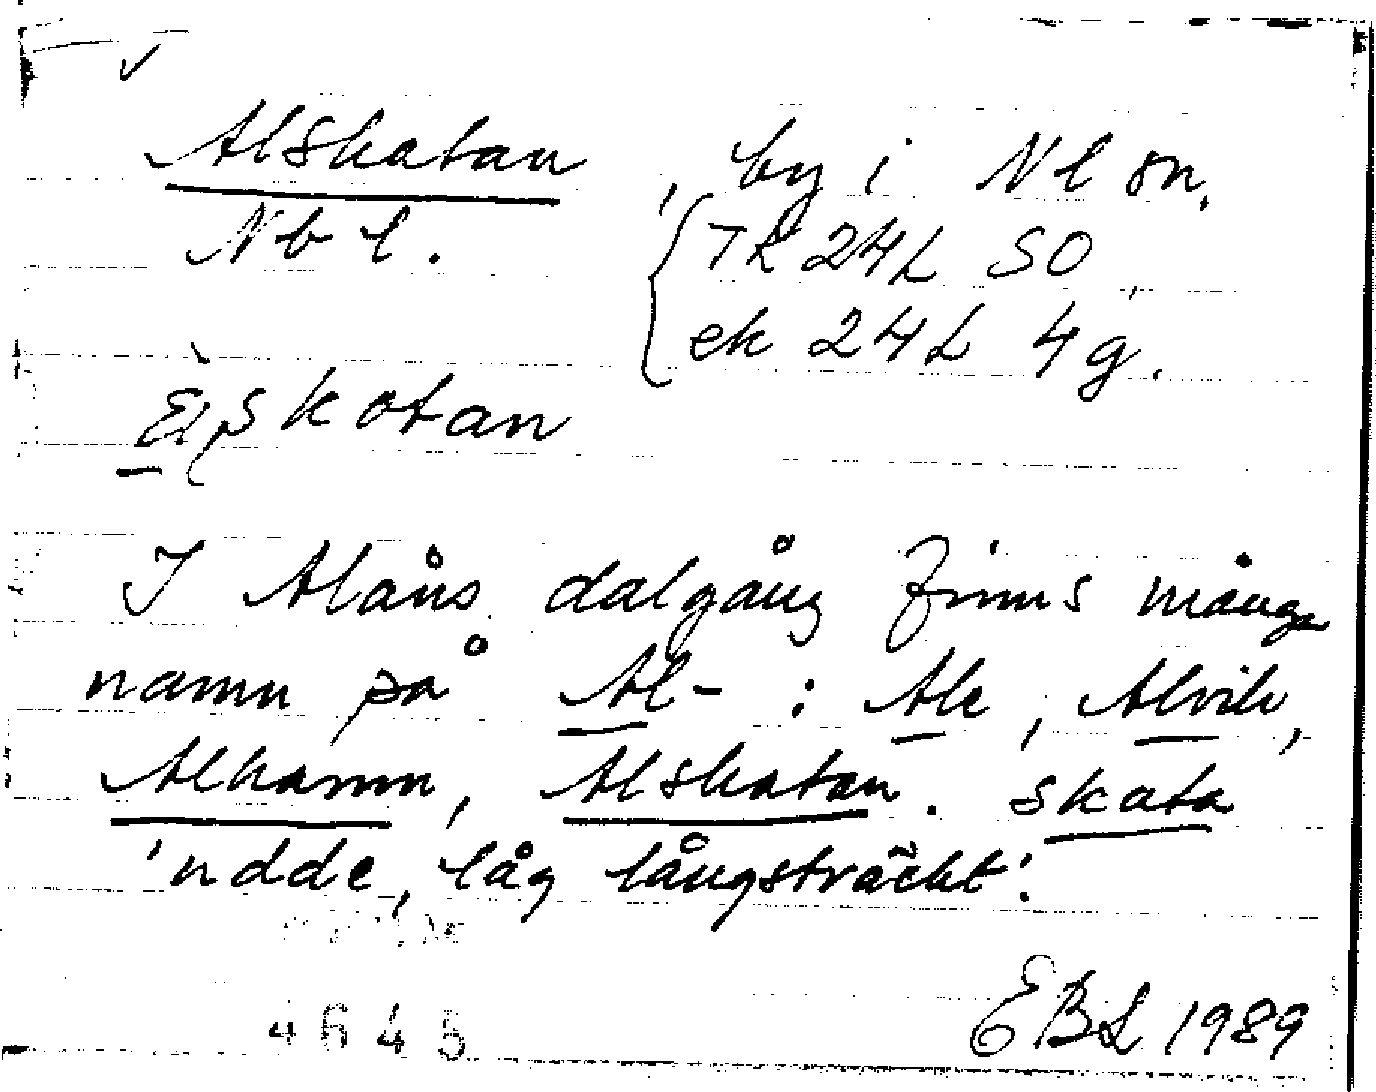 Alskatan, by i Nl sn,
Nb l. TK 24L SO,
ek 24L 4g.
skatan
I Alåns dalgång finns många
namn på Al- : Ale, Alvik,
Alhamn, Alskatan. skata
'udde, låg långsträckt'.
4645 EBL 1989